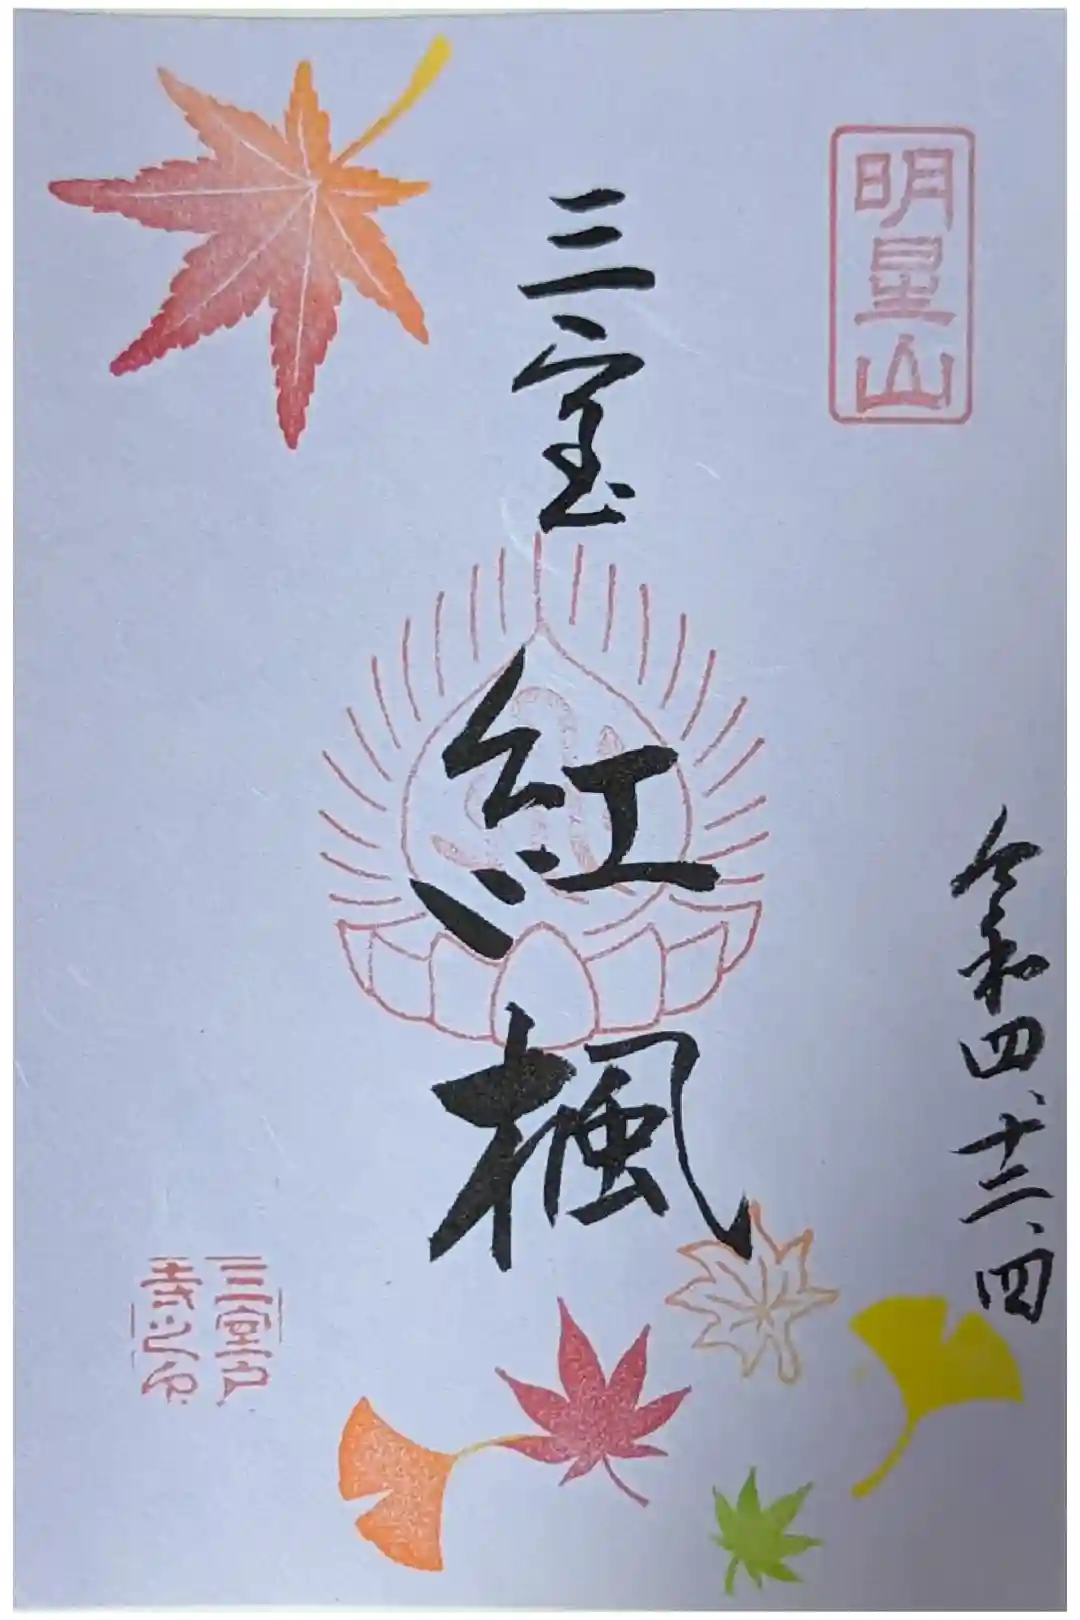 明星山
令和四、十二、四
三室紅楓
三室戸
寺之印